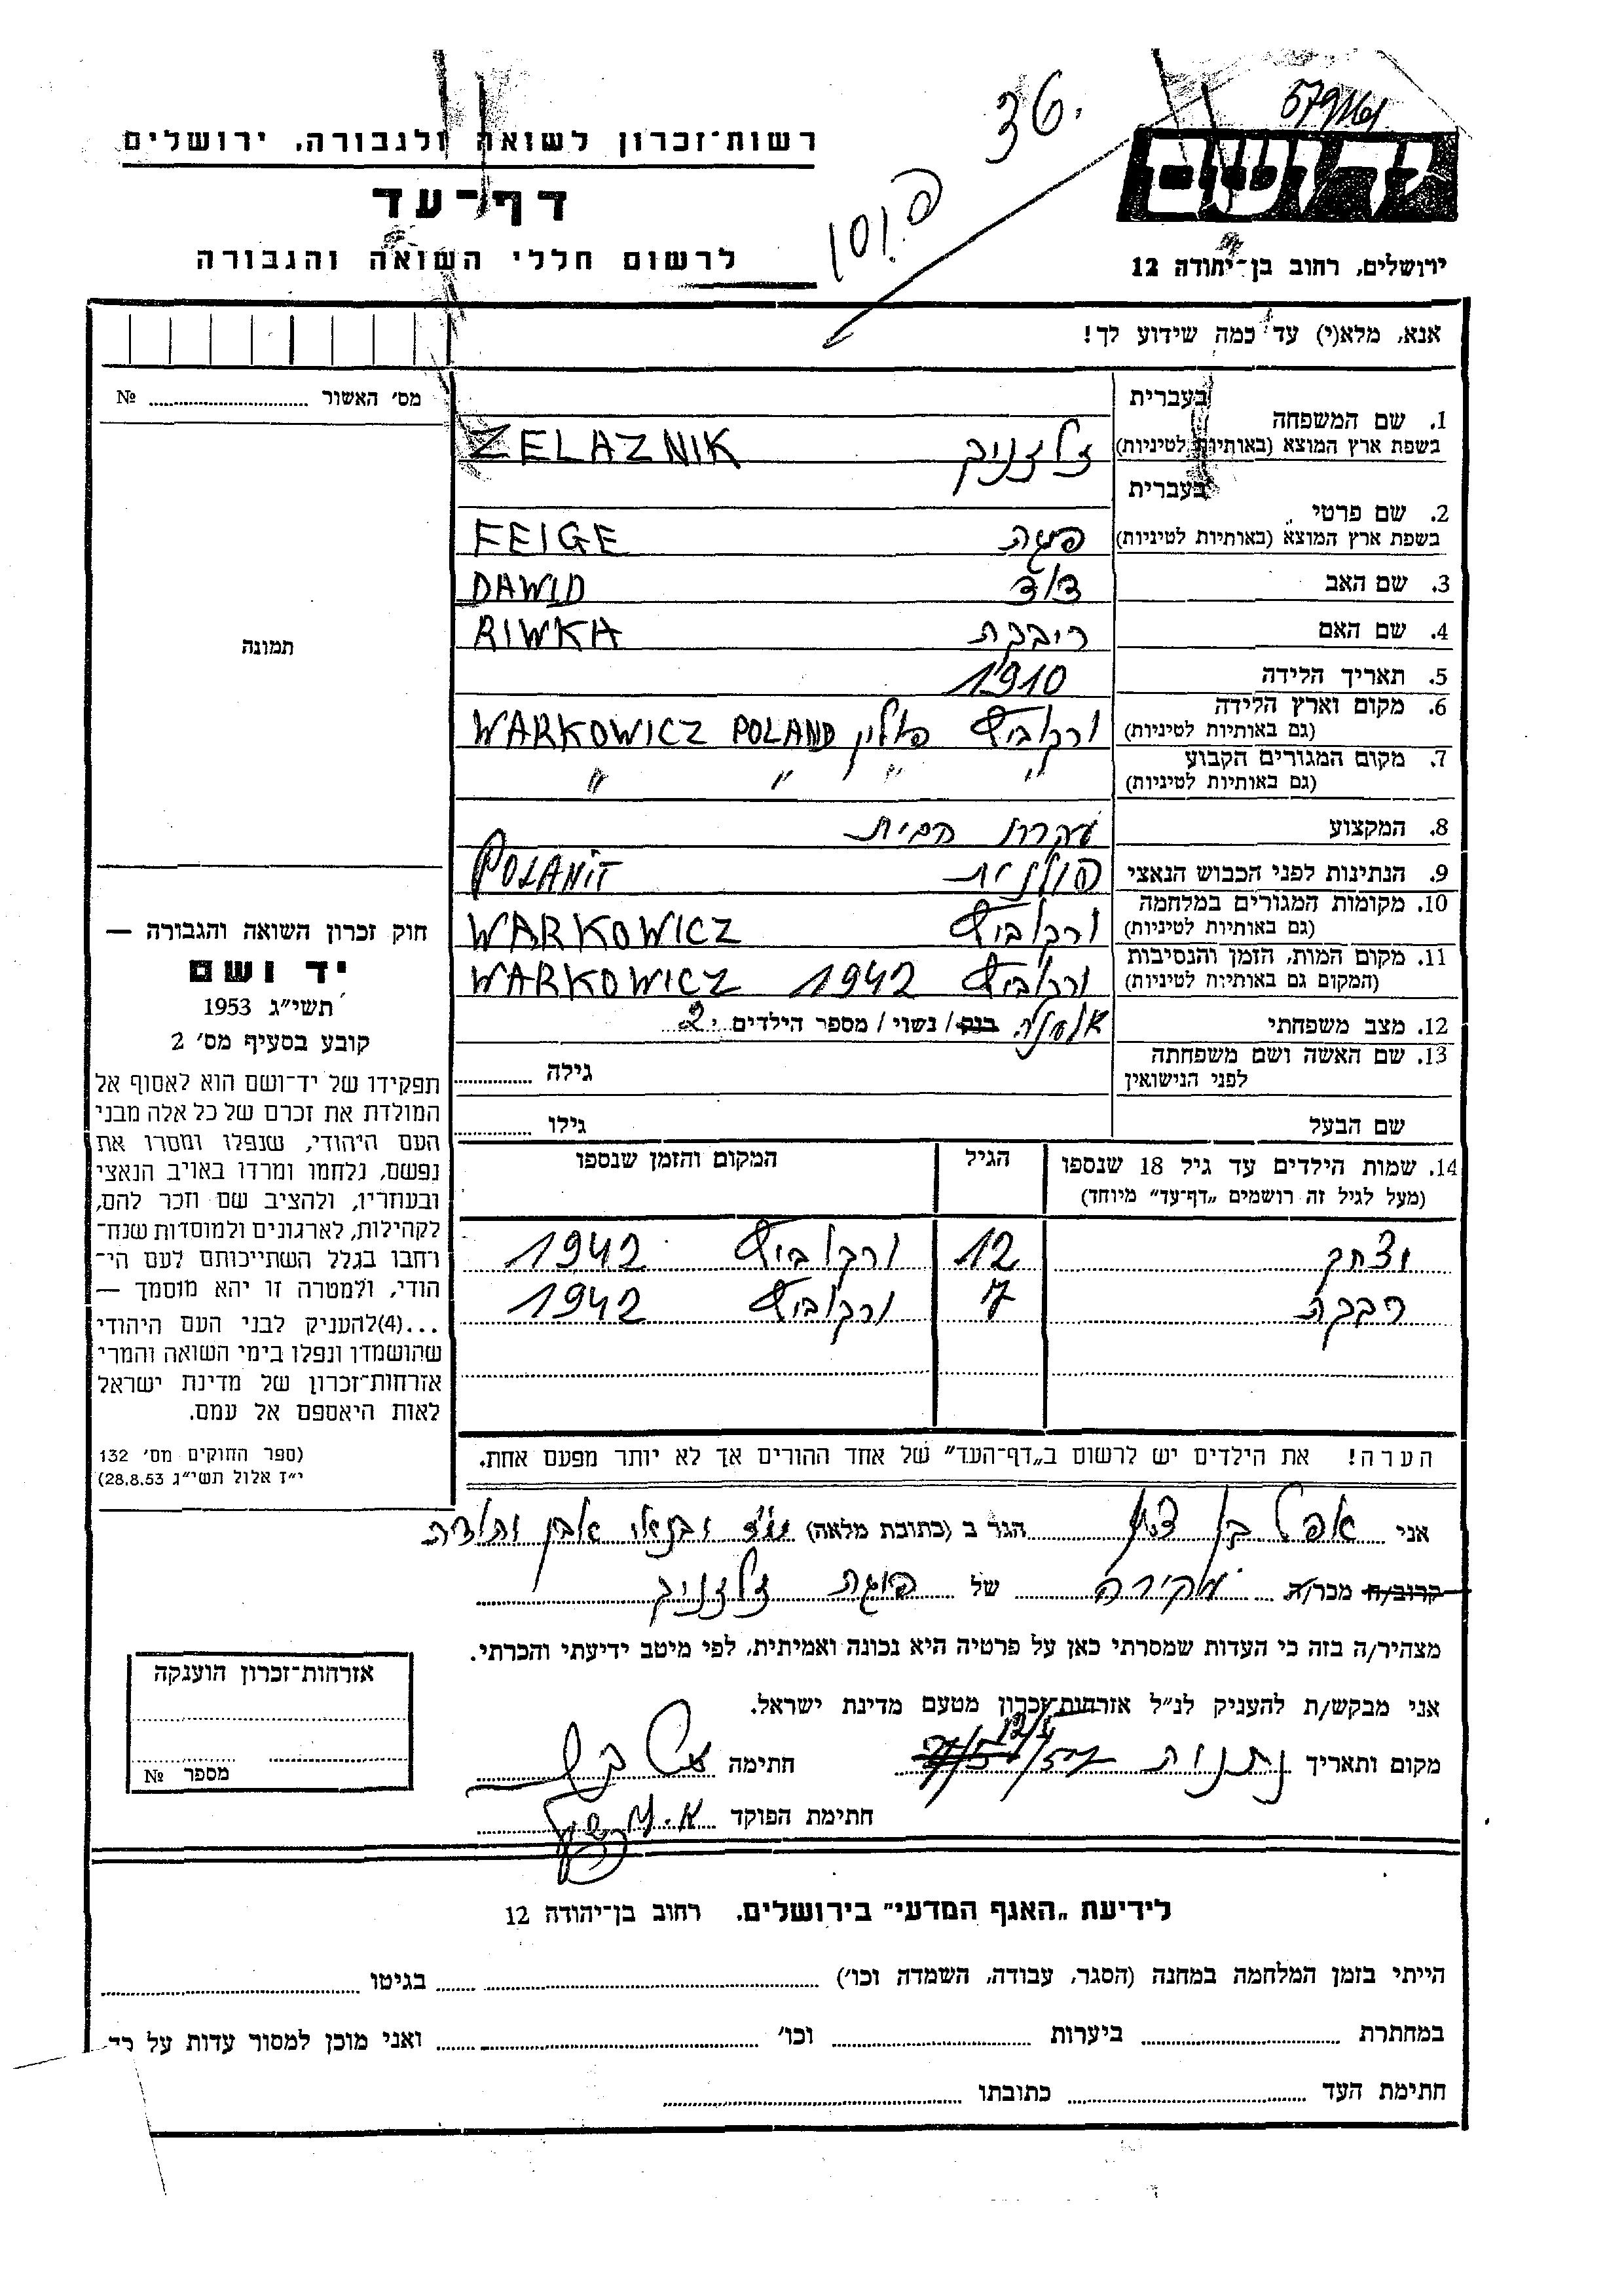 36.
ידושם
רשות־זכרון לשואה ולגבורה, ירושלים
דף־עד
לרשום חללי השואה והגבורה
ירושלים, רחוב בן־יהודה 12
אנא, מלא(י) עד כמה שידוע לך!
מס׳ האשור № 
בעברית
1. שם המשפחה
בשפת ארץ המוצא (באותיות לטיניות) זלזניק ZELAZNIK
בעברית
2. שם פרטי
בשפת ארץ המוצא (באותיות לטיניות) פיגה FEIGE
3. שם האב דוד DAWID
4. שם האם ריבקה RIWKA
5. תאריך הלידה 1910
6. מקום וארץ הלידה ורקוביץ פולין WARKOWICZ POLAND
(גם באותיות לטיניות)
7. מקום המגורים הקבוע " " " "
(גם באותיות לטיניות)
8. המקצוע עקרת הבית
9. הנתינות לפני הכבוש הנאצי פולנית POLANIT
10. מקומות המגורים במלחמה ורקוביץ WARKOWICZ
(גם באותיות לטיניות)
11. מקום המות, הזמן והנסיבות ורקוביץ 1942 WARKOWICZ
(המקום גם באותיות לטיניות)
12. מצב משפחתי אלמנה רווק / נשוי / מספר הילדים 2
13. שם האשה ושם משפחתה גילה
לפני הנישואין
שם הבעל גילו
14. שמות הילדים עד גיל 18 שנספו הגיל המקום והזמן שנספו
(מעל לגיל זה רושמים „דף־עד״ מיוחד)
יצחק 12 ורקוביץ 1942
רבקה 7 ורקוביץ 1942
תמונה
חוק זכרון השואה והגבורה —
יד ושם
תשי״ג 1953
קובע בסעיף מס׳ 2
תפקידו של יד־ושם הוא לאסוף אל
המולדת את זכרם של כל אלה מבני
העם היהודי, שנפלו ומסרו את
נפשם, נלחמו ומרדו באויב הנאצי
ובעוזריו, ולהציב שם וזכר להם,
לקהילות, לארגונים ולמוסדות שנח־
רחבו בגלל השתייכותם לעם הי־
הודי, ולמטרה זו יהא מוסמך —
...(4)להעניק לבני העם היהודי
שהושמדו ונפלו בימי השואה והמרי
אזרחות־זכרון של מדינת ישראל
לאות היאספם אל עמם.
(ספר החוקים מס׳ 132
י״ז אלול תשי״ג 28.8.53)
הערה! את הילדים יש לרשום ב„דף־העד״ של אחד ההורים אך לא יותר מפעם אחת.
אני אפל בן ציון הגר ב (כתובת מלאה) אבן יהודה
קרוב/ה מכר/ה מכירה של פיגה זלזניק
מצהיר/ה בזה כי העדות שמסרתי כאן על פרטיה היא נכונה ואמיתית, לפי מיטב ידיעתי והכרתי.
אני מבקש/ת להעניק לנ״ל אזרחות־זכרון מטעם מדינת ישראל.
מקום ותאריך נתניה חתימה
חתימת הפוקד
אזרחות־זכרון הוענקה
מספר №
לידיעת „האגף המדעי״ בירושלים, רחוב בן־יהודה 12
הייתי בזמן המלחמה במחנה (הסגר, עבודה, השמדה וכו׳) בגיטו
במחתרת ביערות וכו׳ ואני מוכן למסור עדות על כך
חתימת העד כתובתו